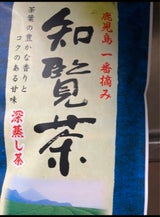 鹿児島一番摘み
知覧茶
茶葉の豊かな香りと
コクのある甘味
深蒸し茶